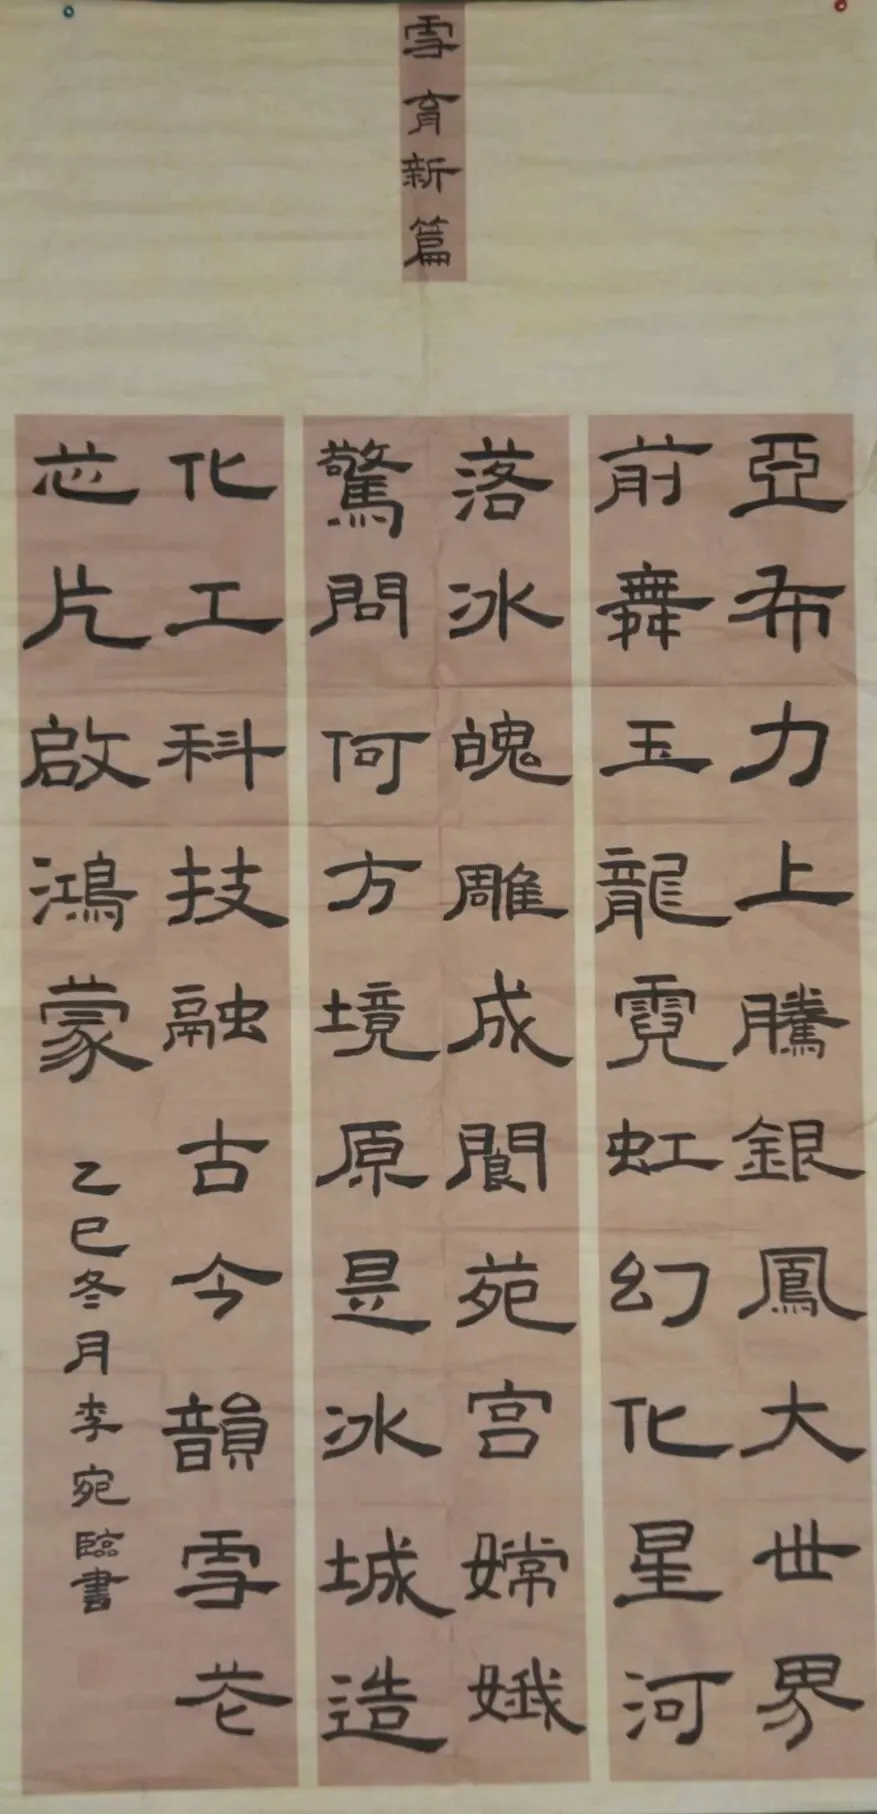 雪育新篇
亞布力上騰銀鳳大世界
前舞玉龍霓虹幻化星河
落冰魄雕成閬苑宮嫦娥
驚問何方境原是冰城造
化工科技融古今韻雪花
芯片啟鴻蒙
乙巳冬月李宛臨書